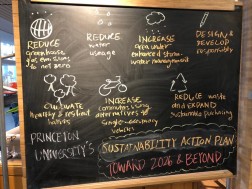 REDUCE
greenhouse
gas emissions
to net zero
REDUCE
water
usage
INCREASE
area under
enhanced storm-
water management
DESIGN &
DEVELOP
responsibly
CULTIVATE
healthy & resilient
habitats
INCREASE
commuters using
alternatives to
single-occupancy
vehicles
REDUCE waste
and EXPAND
sustainable purchasing
PRINCETON
UNIVERSITY'S
SUSTAINABILITY ACTION PLAN
TOWARD 2026 & BEYOND